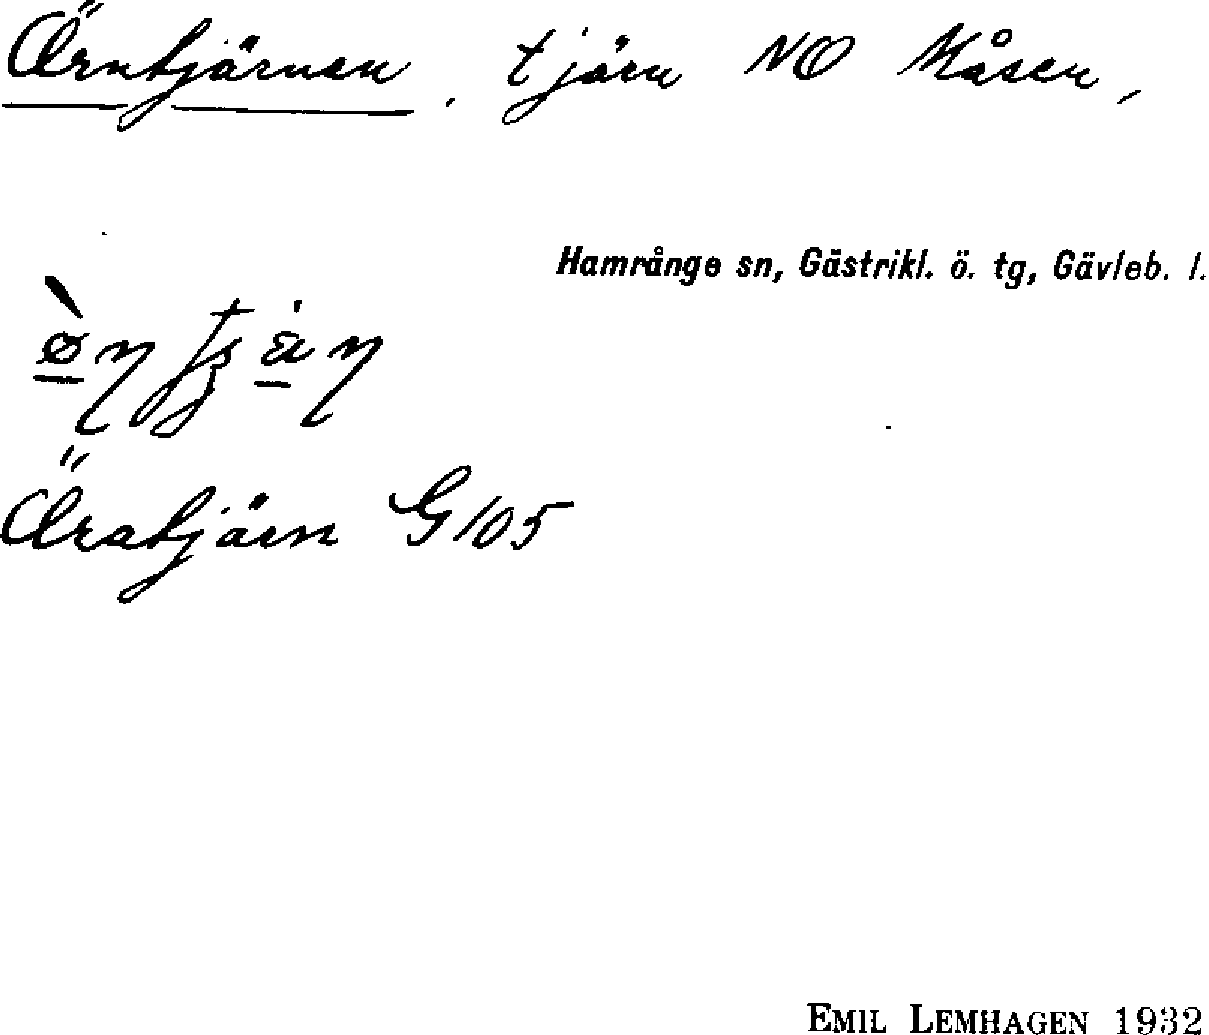 Örntjärnen, tjärn NO Måsen,
Hamrånge sn, Gästrikl. ö. tg, Gävleb. l.
Öratjärn G105
EMIL LEMHAGEN 1932